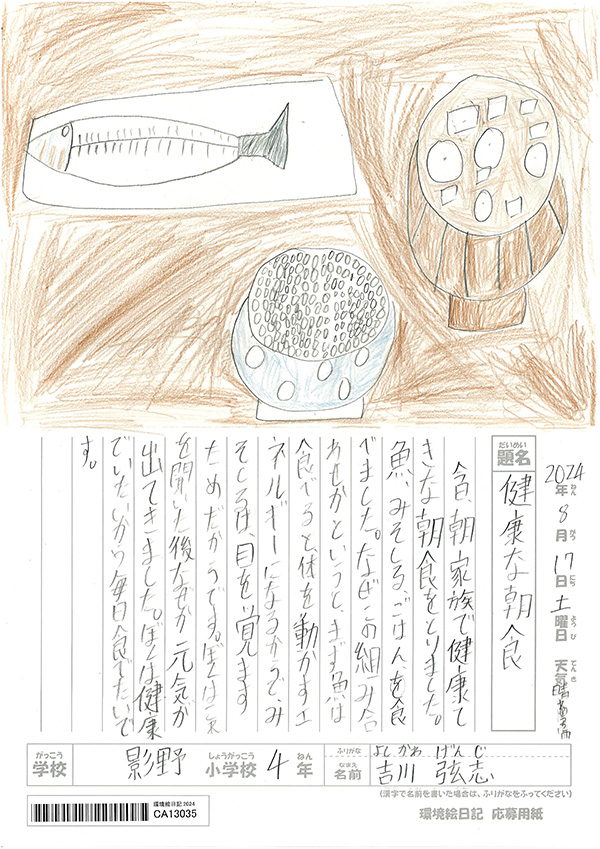 2024年ねん8月がつ17日にち土曜日ようび 天気てんき晴
題名だいめい 健康な朝食
今朝、家族で健康て
きな朝食をとりました。
魚、みそしる、ごはんを食
べました。なぜこの組み合
わせかというと、まず魚は
食べると、体を動かすエ
ネルギーになるからで、み
そしるは、目を覚ます
ためだからです。ぼくは
を聞いた後なぜか元気が
出てきました。ぼくは健康
でいたいから毎日食べたいで
す。
がっこう
学校 影野 しょうがっこう 小学校 4 ねん 年
ふりがな よしかわ げんじ
なまえ 名前 吉川 弦志
(漢字で名前を書いた場合は、ふりがなをふってください)
環境絵日記2024
CA13035
環境絵日記 応募用紙